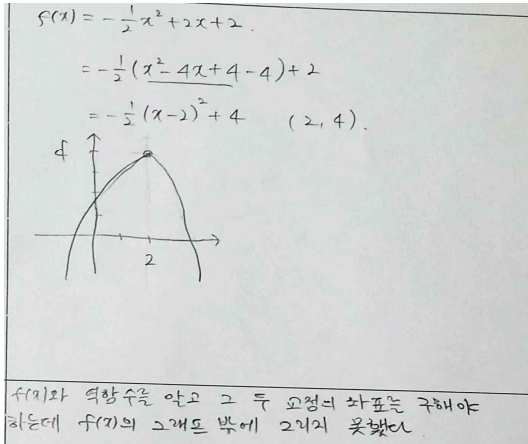 f(x) = -1/2 x² + 2x + 2.
= -1/2 (x² - 4x + 4 - 4) + 2
= -1/2 (x-2)² + 4 (2, 4).
4
2
f(x)와 역함수를 알고 그 두 교점의 좌표를 구해야
하는데 f(x)의 그래프 밖에 그리지 못했다